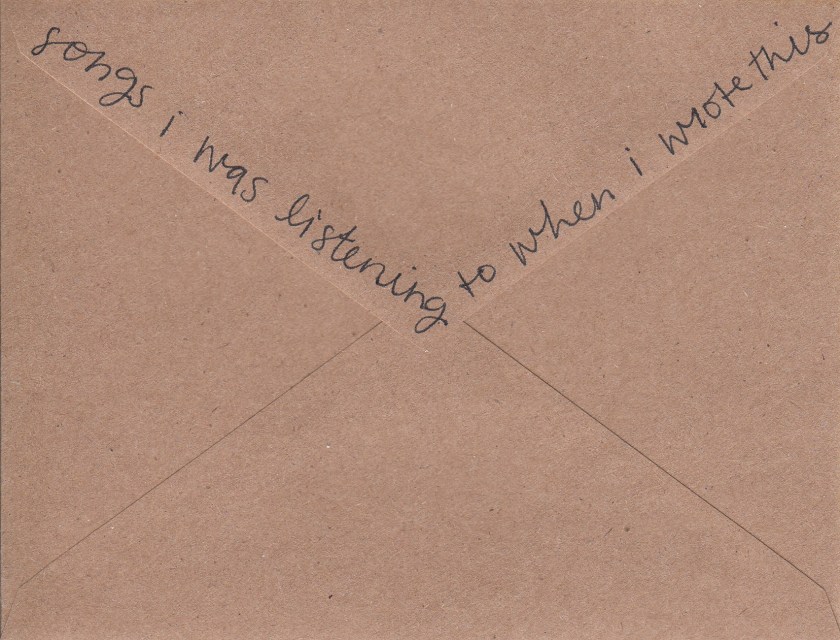 songs i was listening to when i wrote this